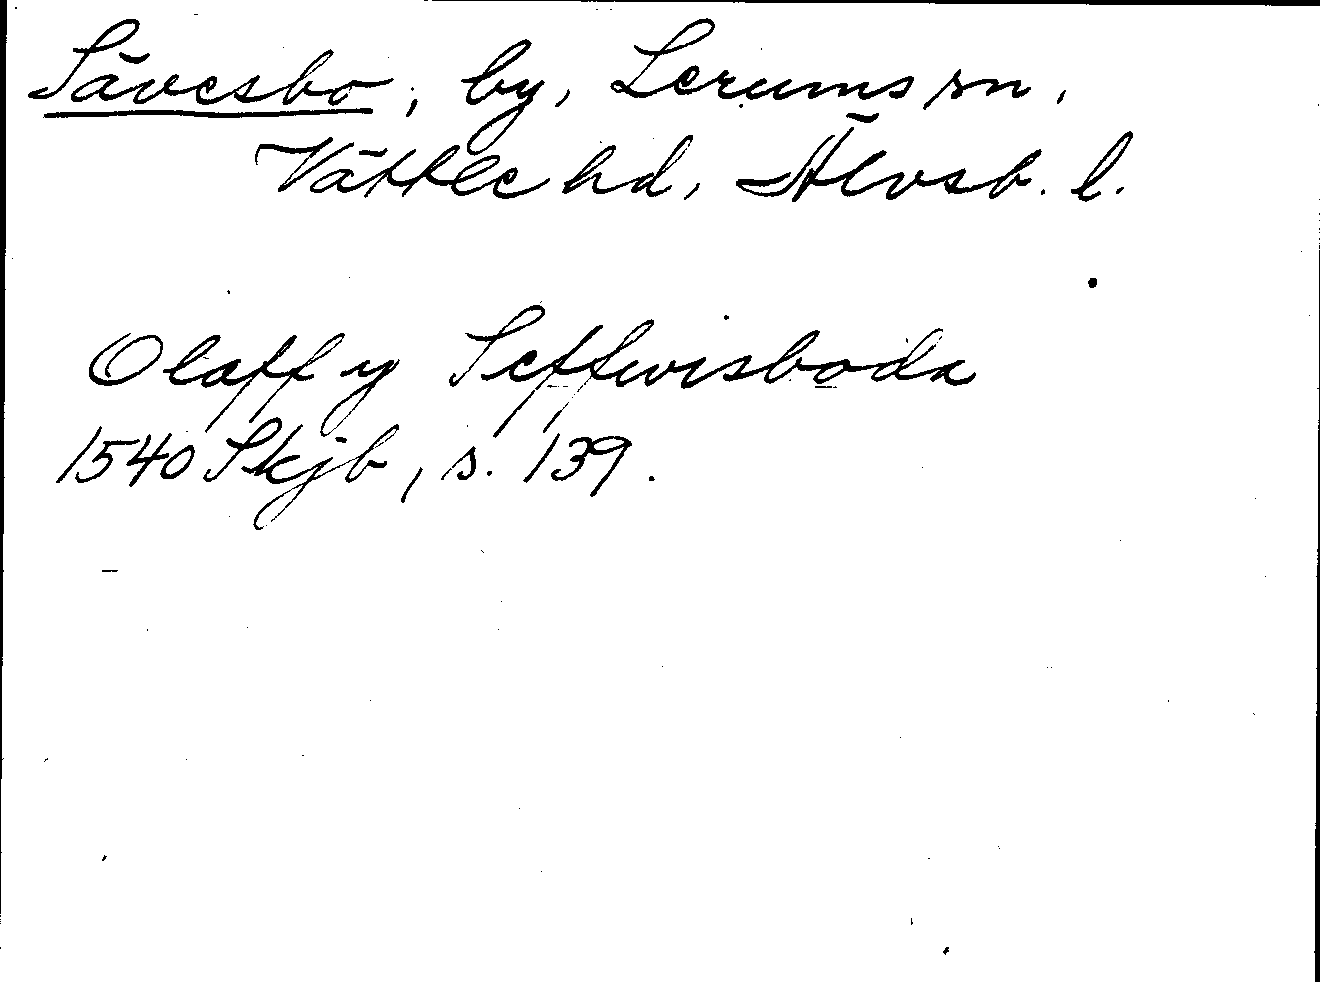 Sävesbo, by, Lerums sn,
Vättle hd, Älvsb. l.
Olaff y Seffwisboda
1540 Skjb, s. 139.